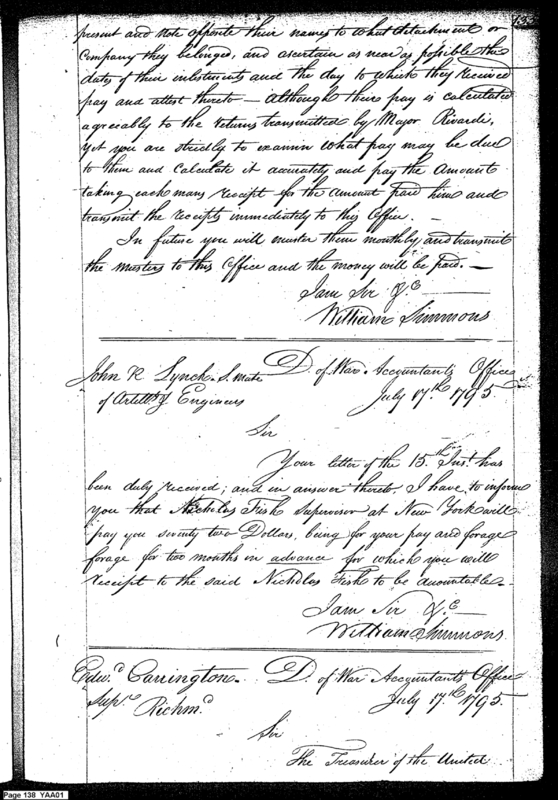 133
present and note opposite their names to what detachment or
Company they belonged, and ascertain as near as possible the
dates of their inlistments and the day to which they received
pay and attest thereto — although there pay is calculated
agreeably to the returns transmitted by Major Rivardi,
yet you are strictly to examin what pay may be due
to them and calculate it accurately and pay the amount
taking each mans receipt for the amount paid him and
transmit the receipts immediately to this Office. —
In future you will muster them monthly and transmit
the musters to this Office and the money will be paid. —
I am Sir &c
William Simmons
John R Lynch S. mate D. of War Accountants Office
of Artill.y & Engineers July 17.th 1795
Sir
Your letter of the 15.th Inst. has
been duly received; and in answer thereto, I have to inform
you that Nicholas Fish Supervisor at New York will
pay you seventy two Dollars, being for your pay and forage
forage for two months in advance for which you will
receipt to the said Nicholas Fish to be accountable. —
I am Sir &c
William Simmons
Edw.d Carrington. D. of War Accountants Office
Sup.r Richm.d July 17.th 1795.
Sir
The Treasurer of the United
Page 138 YAA01